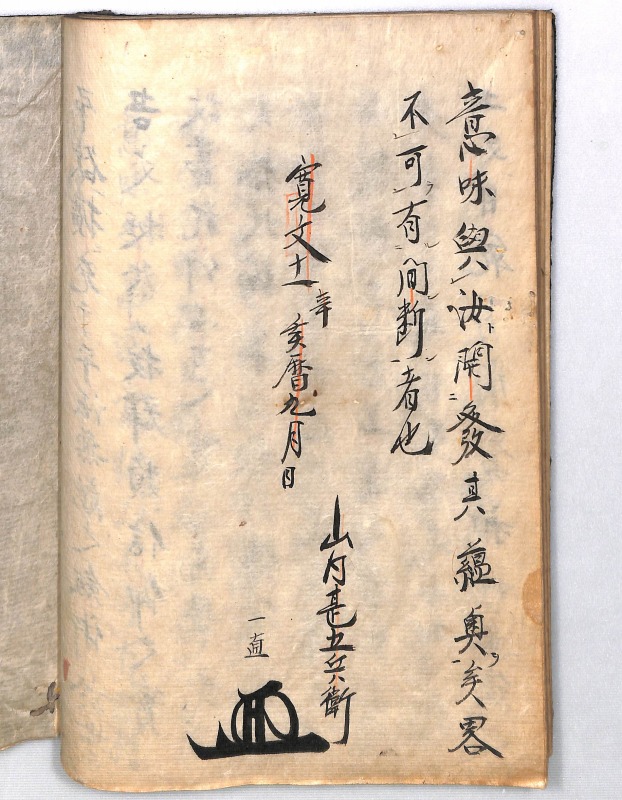 意味與汝開発其蘊奥矣畧
不可有間断者也
寛文十一辛亥暦九月日
山内甚五兵衛
一直